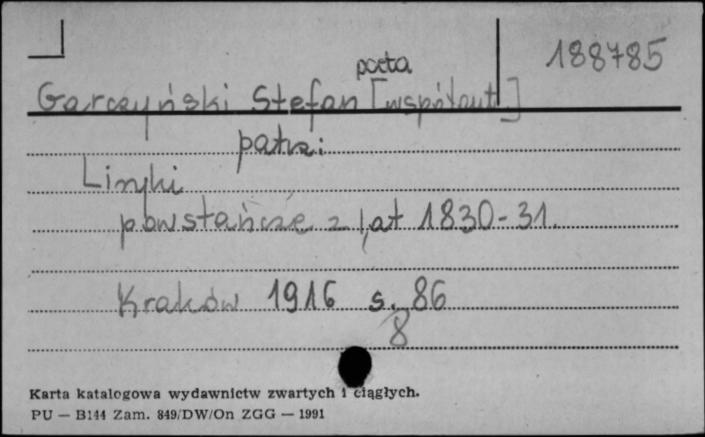 188785
poeta
Garczyński Stefan [współaut.]
patrz:
Liryki
powstańcze z lat 1830-31.
Kraków 1916 s. 86
8
Karta katalogowa wydawnictw zwartych i ciągłych.
PU — B144 Zam. 849/DW/On ZGG — 1991